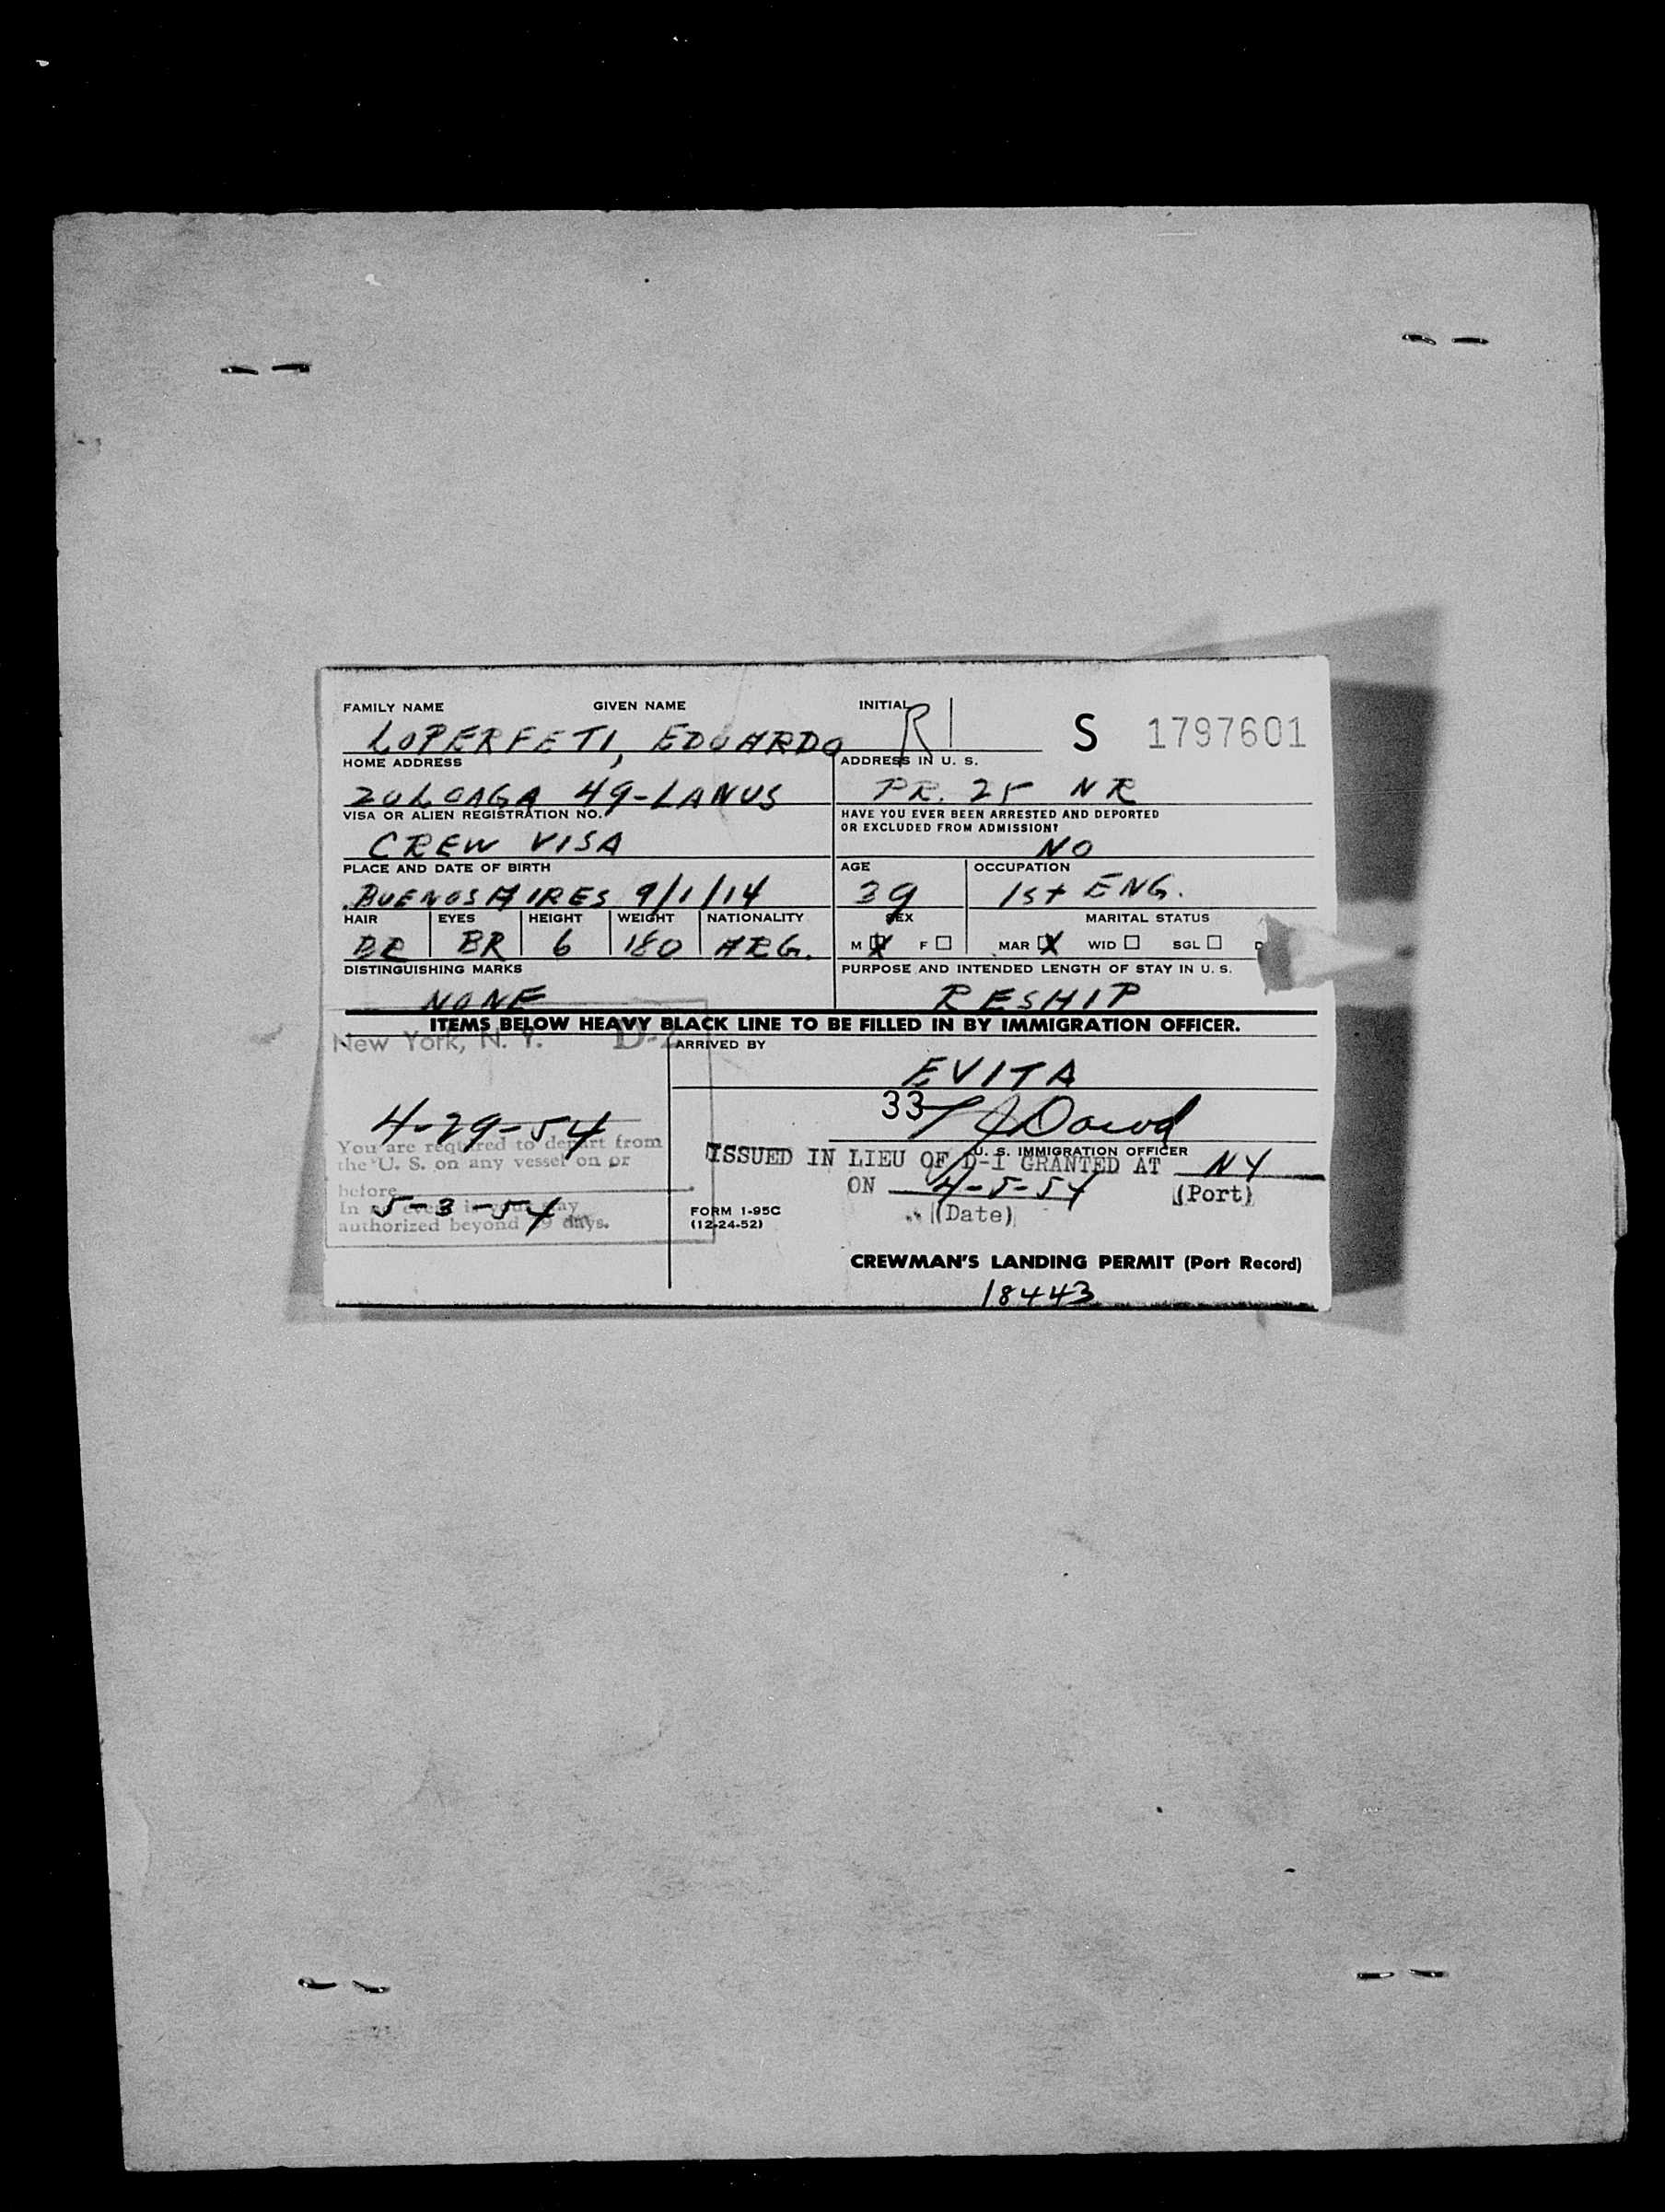 FAMILY NAME GIVEN NAME INITIAL
LOPERFETI, EDUARDO R S 1797601
HOME ADDRESS ADDRESS IN U. S.
ZULOAGA 49-LANUS PR. 25 NR
VISA OR ALIEN REGISTRATION NO. HAVE YOU EVER BEEN ARRESTED AND DEPORTED
OR EXCLUDED FROM ADMISSION?
CREW VISA NO
PLACE AND DATE OF BIRTH AGE OCCUPATION
BUENOS AIRES 9/1/14 39 1st ENG.
HAIR EYES HEIGHT WEIGHT NATIONALITY SEX MARITAL STATUS
BR BR 6 180 ARG. M X F MAR X WID SGL D
DISTINGUISHING MARKS PURPOSE AND INTENDED LENGTH OF STAY IN U. S.
NONE RESHIP
ITEMS BELOW HEAVY BLACK LINE TO BE FILLED IN BY IMMIGRATION OFFICER.
New York, N. Y. D-2 ARRIVED BY
EVITA
4-29-54 33
You are required to depart from
the U. S. on any vessel on or
U. S. IMMIGRATION OFFICER
ISSUED IN LIEU OF D-1 GRANTED AT NY
before 5-3-54 ON 4-5-54 (Port)
In no event is your stay
authorized beyond 29 days.
(Date)
FORM I-95C
(12-24-52)
CREWMAN'S LANDING PERMIT (Port Record)
18443